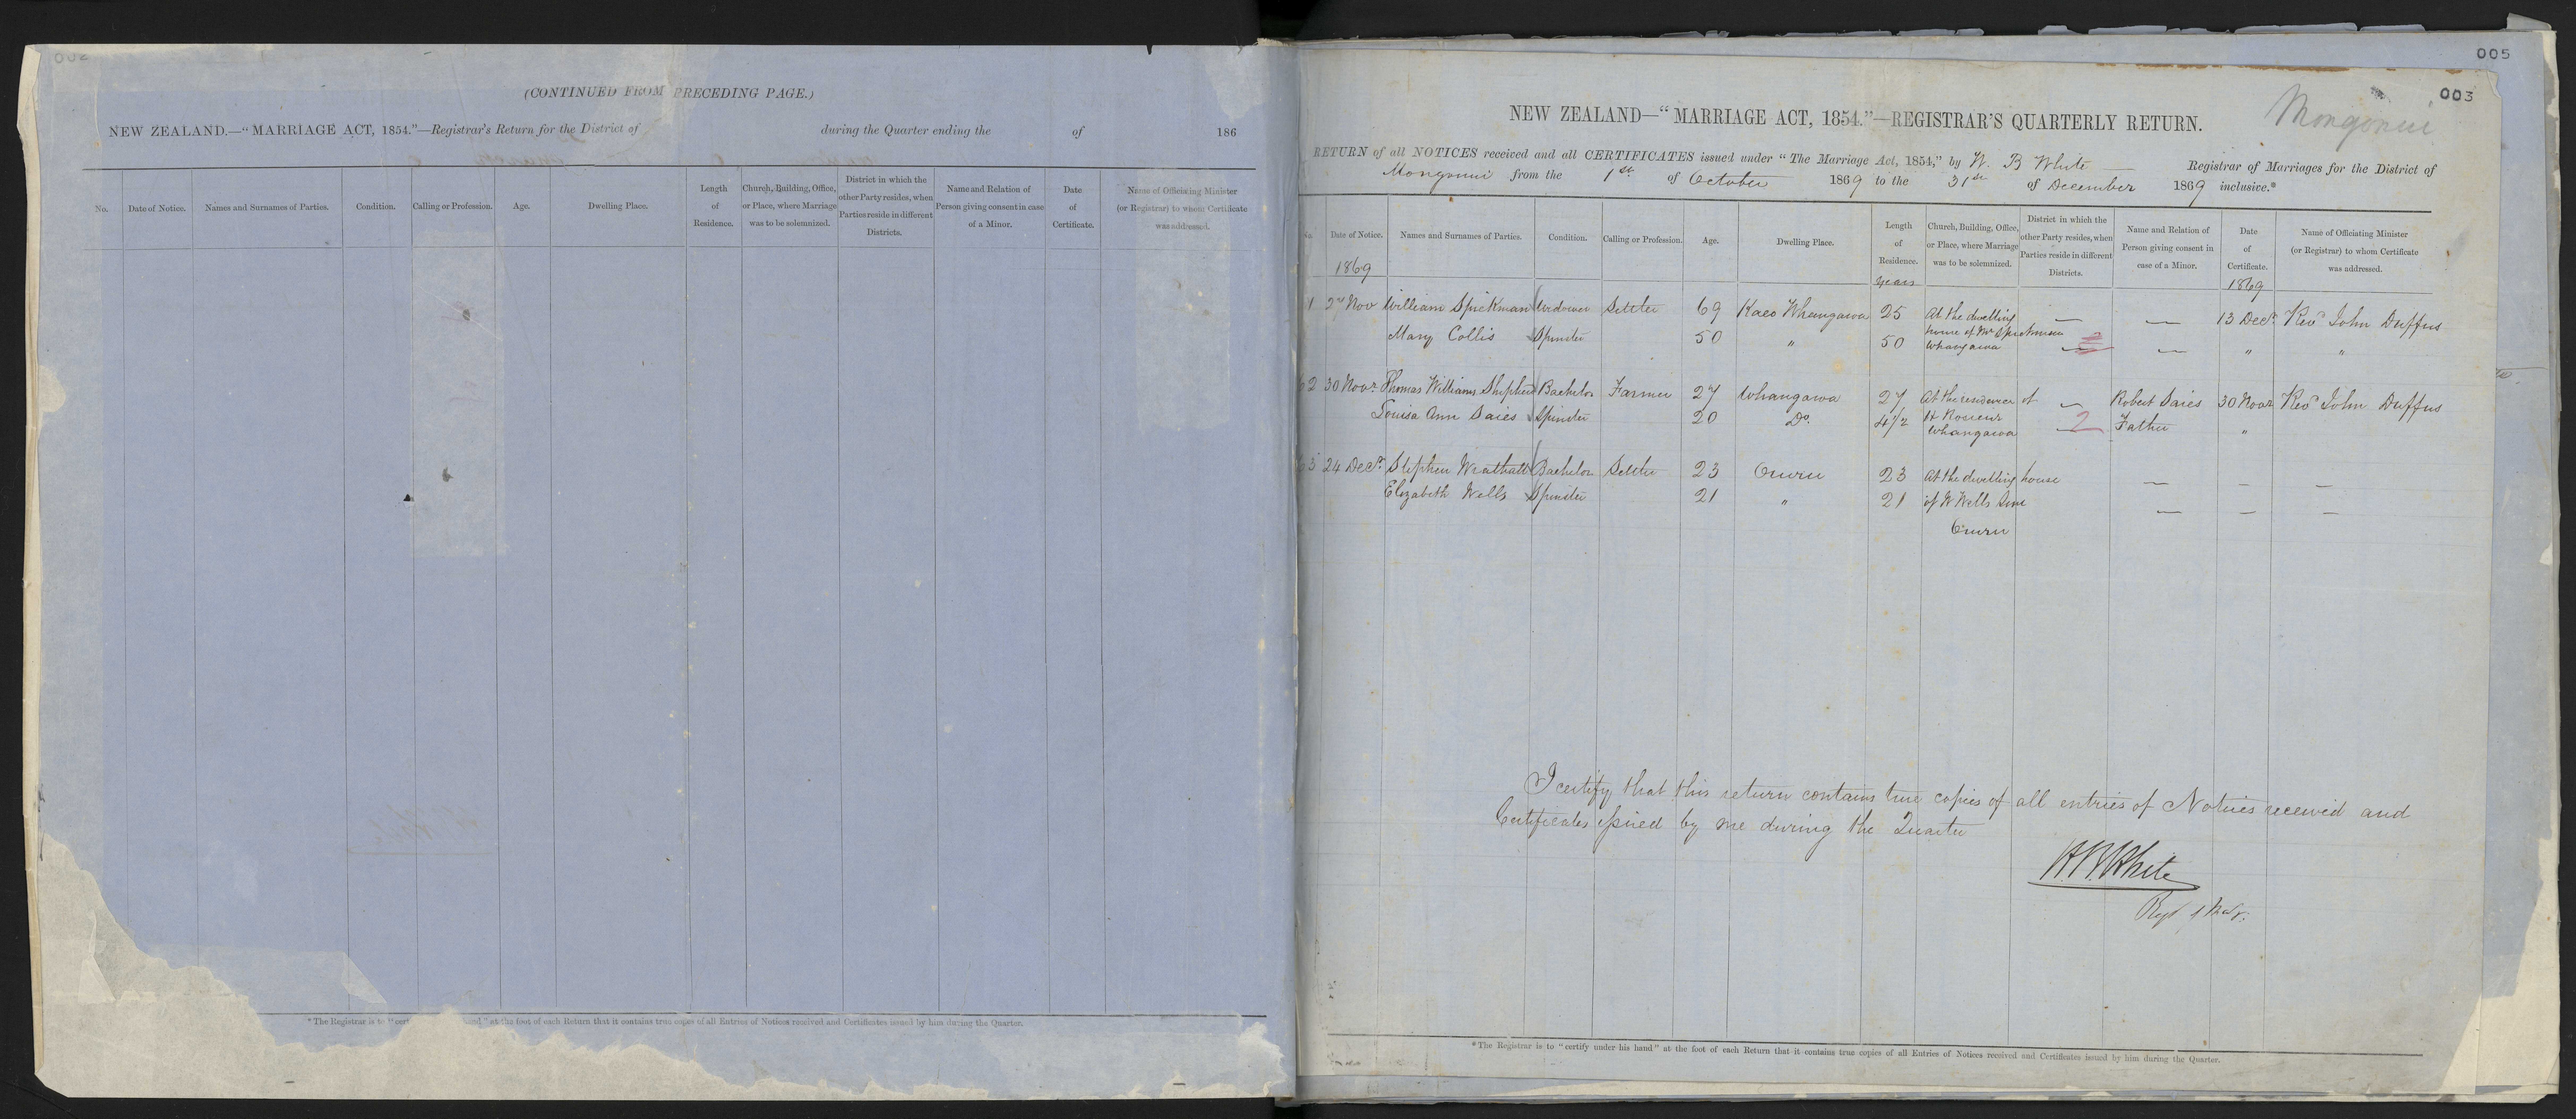 (CONTINUED FROM PRECEDING PAGE.)
NEW ZEALAND.—“MARRIAGE ACT, 1854.”—Registrar's Return for the District of during the Quarter ending the of 186
No. Date of Notice. Names and Surnames of Parties. Condition. Calling or Profession. Age. Dwelling Place. Length of Residence. Church, Building, Office, or Place, where Marriage was to be solemnized. District in which the other Party resides, when Parties reside in different Districts. Name and Relation of Person giving consent in case of a Minor. Date of Certificate. Name of Officiating Minister (or Registrar) to whom Certificate was addressed.
*The Registrar is to “cert and” at the foot of each Return that it contains true copies of all Entries of Notices received and Certificates issued by him during the Quarter.
005
003
Mongonui
NEW ZEALAND—“MARRIAGE ACT, 1854.”—REGISTRAR'S QUARTERLY RETURN.
RETURN of all NOTICES received and all CERTIFICATES issued under “The Marriage Act, 1854,” by W. B White Registrar of Marriages for the District of
Mongonui from the 1st of October 1869 to the 31st of December 1869 inclusive.*
No. Date of Notice. Names and Surnames of Parties. Condition. Calling or Profession. Age. Dwelling Place. Length of Residence. Church, Building, Office, or Place, where Marriage was to be solemnized. District in which the other Party resides, when Parties reside in different Districts. Name and Relation of Person giving consent in case of a Minor. Date of Certificate. Name of Officiating Minister (or Registrar) to whom Certificate was addressed.
1869 years 1869
1 2nd Nov William Spickman Widower Settler 69 Kaeo Whangaroa 25 At the dwelling — — 13 Decr Revd John Duffus
house of Mr Spickman
Mary Collis Spinster 50 " 50 Whangaroa — — " "
2 30 Novr Thomas Williams Shepherd Bachelor Farmer 27 Whangaroa 27 At the residence of — Robert Saies 30 Novr Revd John Duffus
Louisa Ann Saies Spinster 20 Do. 4 1/2 H Whangaroa — 2 Father "
3 24 Decr Stephen Wrathall Bachelor Settler 23 Oruru 23 At the dwelling house — — —
Elizabeth Wells Spinster 21 " 21 of W Wells Senr — — —
Oruru
I certify that this return contains true copies of all entries of Notices received and
Certificates issued by me during the Quarter
W.B. White
*The Registrar is to “certify under his hand” at the foot of each Return that it contains true copies of all Entries of Notices received and Certificates issued by him during the Quarter.